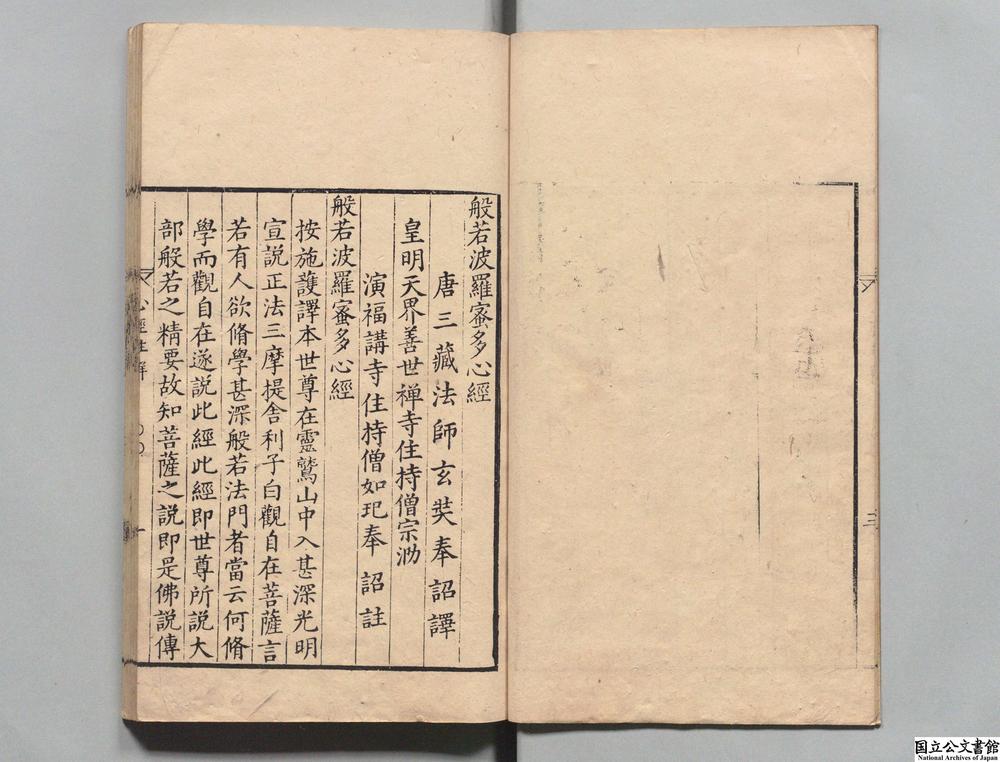 般若波羅蜜多心經
唐三藏法師玄奘奉詔譯
皇明天界善世禅寺住持僧宗泐
演福講寺住持僧如玘奉詔註
般若波羅蜜多心經
按施護譯本世尊在靈鷲山中入甚深光明
宣說正法三摩提舍利子白觀自在菩薩言
若有人欲脩學甚深般若法門者當云何脩
學而觀自在遂說此經此經即世尊所說大
部般若之精要故知菩薩之說即是佛說傳
心經註解
一
三
国立公文書館
National Archives of Japan